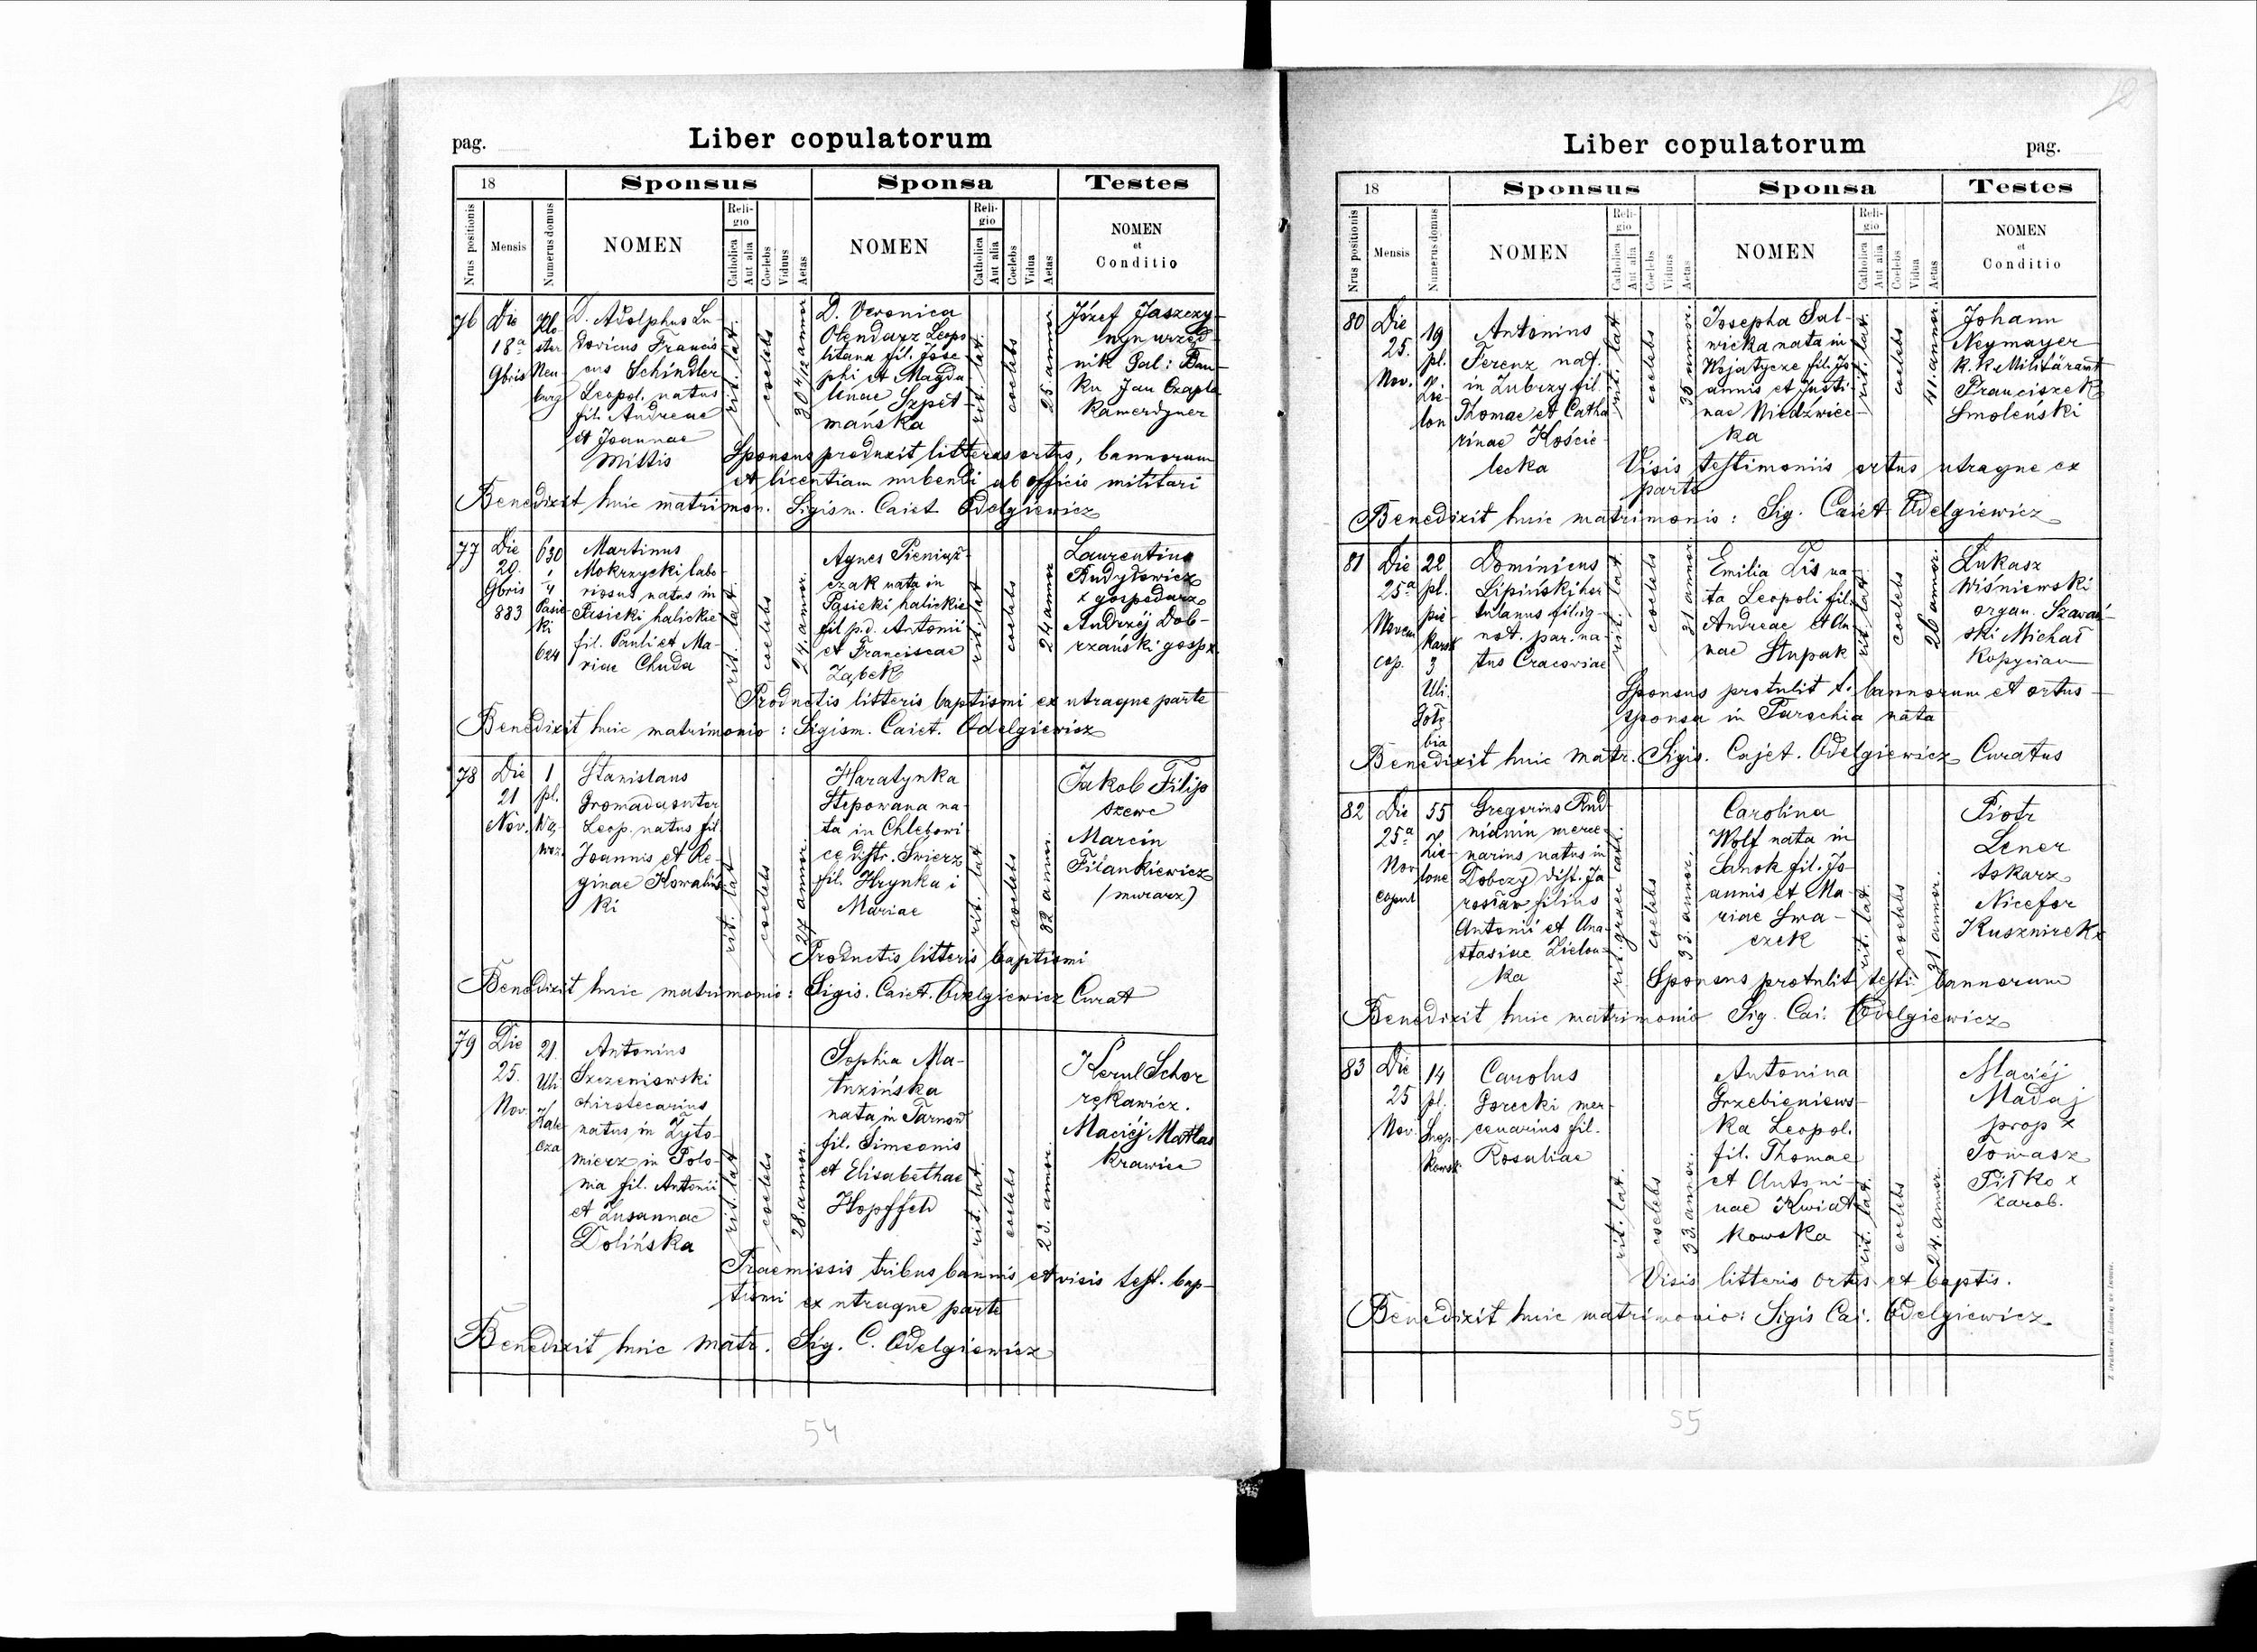 pag.
Liber copulatorum
18
Sponsus
Sponsa
Testes
Nrus positionis
Mensis
Numerus domus
NOMEN
Reli-
gio
Catholica
Aut alia
Coelebs
Viduus
Aetas
NOMEN
Reli-
gio
Catholica
Aut alia
Coelebs
Vidua
Aetas
NOMEN
et
Conditio
76
Die
18ª
9bris
Klo
ster
Neu
burg
D. Adolphus Lu-
dovicus Francis
cus Schindler
Leopol. natus
fil. Andreae
et Joannae
Mittis
rit. lat.
coelebs
30 4/12 annor.
D. Veronica
Olendarz Leopo
litana fil. Jose
phi et Magda
lenae Szpet-
mańska
rit. lat.
coelebs
25 annor.
Józef Jaszczy-
nyn urzęd-
nik Gal: Ban-
ku Jan Czapla
Kamerdyner
Sponsus produxit litteras ortus, bannorum
et licentiam nubendi ab officio militari
Benedixit huic matrimon. Sigism. Caiet. Odelgiewicz
77
Die
20.
9bris
883
630
1/4
Pasie
ki
624
Martinus
Mokrzycki labo-
riosus natus in
Pasieki halickie
fil. Pauli et Ma-
riae Chuda
rit. lat.
coelebs
24. annor.
Agnes Pieniąż-
czak nata in
Pasieki halickie
fil p.d. Antonii
et Franciscae
Ząbek
rit. lat
coelebs
24 annor
Laurentius
Budyłowicz
x gospodarz
Andrzéj Dob-
rzański gosp x
Productis litteris baptismi ex utraque parte
Benedixit huic matrimonio: Sigism. Caiet. Odelgiewicz
78
Die
21
Nov.
1
pl.
Wą-
woz.
Stanislaus
Gromada suter
Leop. natus fil.
Joannis et Re-
ginae Kowaliń-
ki
rit. lat
coelebs
27 annor.
Haratynka
Stepowana na-
ta in Chlebowi
ce distr. Swierz
fil. Hrynka i
Mariae
rit. lat
coelebs
32 annor.
Jakob Filip
szewc
Marcin
Filankiewicz
(murarz)
Productis litteris baptismi
Benedixit huic matrimonio: Sigis. Caiet. Odelgiewicz Curat
79
Die
25.
Nov.
21.
Uli
Kale
cza
Antonius
Szczeniowski
chirotecarius
natus in Żyto-
mierz in Polo-
nia fil. Antonii
et Zusannae
Dolińska
rit. lat
coelebs
28. annor.
Sophia Ma-
tuzińska
nata in Tarnow
fil. Simeonis
et Elisabethae
Hopffeh
rit. lat.
coelebs
23. annor.
Kerul Schor
rękawicz.
Maciéj Matlas
Krawiec
Praemissis tribus bannis et visis test. bap-
tismi ex utraque parte
Benedixit huic matr. Sig. C. Odelgiewicz
54
Liber copulatorum
pag.
18
Sponsus
Sponsa
Testes
Nrus positionis
Mensis
Numerus domus
NOMEN
Reli-
gio
Catholica
Aut alia
Coelebs
Viduus
Aetas
NOMEN
Reli-
gio
Catholica
Aut alia
Coelebs
Vidua
Aetas
NOMEN
et
Conditio
80
Die
25.
Nov.
19
pl.
Zie-
lon
Antonius
Ferenz nat.
in Zubrzy fil.
Thomae et Catha
rinae Koście-
lecka
rit. lat
coelebs
35 annor.
Josepha Sal-
wicka nata in
Wojatycze fil. Jo-
annis et Justi-
nae Niedzwiec-
ka
rit. lat.
coelebs
41. annor.
Johann
Neymayer
k. k. Militärant
Franciszek
Smoleński
Visis testimoniis ortus utraque ex
parte
Benedixit huic matrimonio: Sig. Caiet. Odelgiewicz
81
Die
25ª
Novem
cop.
22
pl.
pie-
karsk
3
Uli.
Gołę
bia
Dominicus
Lipiński hor
tulanus fil. ig-
not. par. na-
tus Cracoviae
rit. lat.
coelebs
31 annor.
Emilia Lis na-
ta Leopoli fil.
Andreae et An-
nae Stupak
rit. lat.
coelebs
26 annor.
Łukasz
Wiśniewski
organ. Szawal-
ski Michał
Kopycian
Sponsus protulit t. bannorum et ortus
sponsa in Parochia nata
Benedixit huic matr. Sigis. Cajet. Odelgiewicz Curatus
82
Die
25ª
Nov
copul
55
Zie-
lone
Gregorius Rud
nianin merce-
narius natus in
Dobczy dist. Ja-
rosław filius
Antonii et Ana-
stasiae Zielon-
ka
rit. graec cath.
coelebs
33. annor.
Carolina
Wolf nata in
Sanok fil. Jo-
annis et Ma-
riae Swa-
czek
rit. lat.
coelebs
31 annor.
Piotr
Lener
tokarz
Nicefor
Kusznirek x
Sponsus protulit testi. bannorum
Benedixit huic matrimonio Sig. Cai. Odelgiewicz
83
Die
25
Nov.
14
pl.
Snop-
kowsk.
Carolus
Gorecki mer-
cenarius fil.
Rosaliae
rit. lat.
coelebs
33. annor.
Antonina
Grzebieniows-
ka Leopol.
fil. Thomae
et Antoni-
nae Kwiat
kowska
rit. lat.
coelebs
24. annor.
Maciéj
Madaj
prop x
Tomasz
Piłko x
zarob.
Visis litteris ortus et baptis.
Benedixit huic matrimonio: Sigis Cai. Odelgiewicz
55